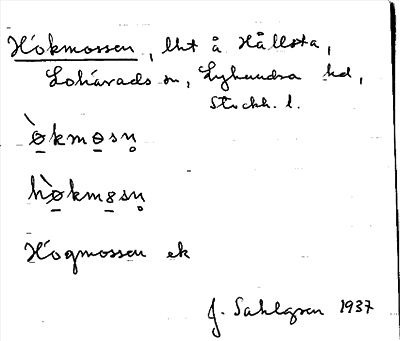 Hökmossen, lht å Hållsta,
Lohärads sn, Lyhundra hd,
Stockh. l.
ø̀kmɵsn̥
hø̀kmɵsn̥
Högmossen ek
J. Sahlgren 1937